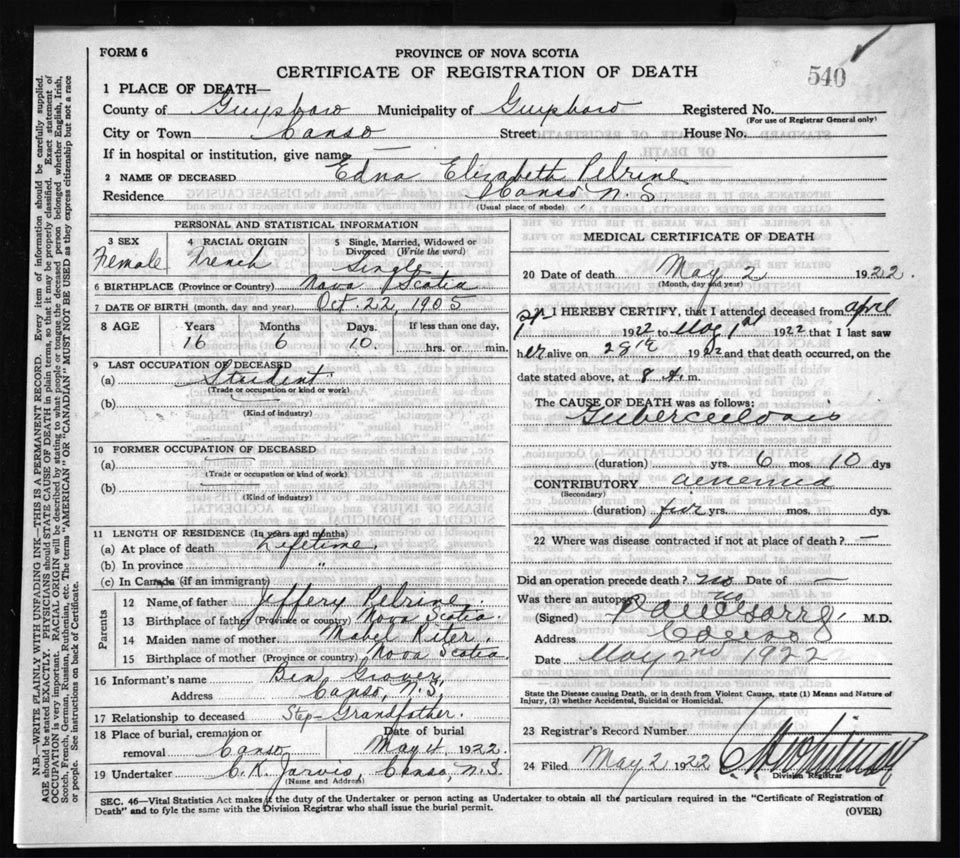 FORM 6
PROVINCE OF NOVA SCOTIA
CERTIFICATE OF REGISTRATION OF DEATH
540
1 PLACE OF DEATH—
County of Guysboro Municipality of Guysboro Registered No.
(For use of Registrar General only)
City or Town Canso Street House No.
If in hospital or institution, give name —
2 NAME OF DECEASED Edna Elizabeth Pelrine
Residence Canso N. S.
(Usual place of abode)
PERSONAL AND STATISTICAL INFORMATION
3 SEX 4 RACIAL ORIGIN 5 Single, Married, Widowed or Divorced (Write the word)
Female French Single
6 BIRTHPLACE (Province or Country) Nova Scotia
7 DATE OF BIRTH (month, day and year) Oct. 22, 1905
8 AGE Years Months Days. If less than one day,
16 6 10 hrs. or min.
9 LAST OCCUPATION OF DECEASED
(a) Student
(Trade or occupation or kind or work)
(b)
(Kind of industry)
10 FORMER OCCUPATION OF DECEASED
(a) —
(Trade or occupation or kind of work)
(b) —
(Kind of industry)
11 LENGTH OF RESIDENCE (In years and months)
(a) At place of death Lifetime.
(b) In province "
(c) In Canada (if an immigrant)
Parents
12 Name of father Jeffery Pelrine.
13 Birthplace of father (Province or country) Nova Scotia
14 Maiden name of mother Mabel Kiter.
15 Birthplace of mother (Province or country) Nova Scotia
16 Informant's name Ben Grover
Address Canso, N.S.
17 Relationship to deceased Step-Grandfather.
18 Place of burial, cremation or removal Date of burial
Canso May 4 1922.
19 Undertaker C. K. Jarvis, Canso, N.S.
(Name and Address)
MEDICAL CERTIFICATE OF DEATH
20 Date of death May 2 1922.
(Month, day and year)
I HEREBY CERTIFY, that I attended deceased from April
1922 to May 1st 1922 that I last saw
her alive on 28th 1922 and that death occurred, on the
date stated above, at 8 A. m.
The CAUSE OF DEATH was as follows:
Tuberculosis
(duration) yrs. 6 mos. 10 dys
CONTRIBUTORY aenemia
(Secondary)
(duration) five yrs. mos. dys.
22 Where was disease contracted if not at place of death? —
Did an operation precede death? no Date of —
Was there an autopsy no
(Signed) M.D.
Address Canso
Date May 2nd 1922
State the Disease causing Death, or in death from Violent Causes, state (1) Means and Nature of
Injury, (2) whether Accidental, Suicidal or Homicidal.
23 Registrar's Record Number
24 Filed May 2 1922
Division Registrar
SEC. 46—Vital Statistics Act makes it the duty of the Undertaker or person acting as Undertaker to obtain all the particulars required in the "Certificate of Registration of
Death" and to fyle the same with the Division Registrar who shall issue the burial permit.
(OVER)
N.B.—WRITE PLAINLY WITH UNFADING INK—THIS IS A PERMANENT RECORD. Every item of information should be carefully supplied.
AGE should be stated EXACTLY. PHYSICIANS should STATE CAUSE OF DEATH in plain terms, so that it may be properly classified. Exact statement of
OCCUPATION is very important. RACIAL ORIGIN will be described by stating to what people or tongue the deceased person belonged whether English, Irish,
Scotch, French, German, Russian, Ruthenian, etc. The terms "AMERICAN" OR "CANADIAN" MUST NOT BE USED as they express citizenship but not a race
or people. See instructions on back of Certificate.